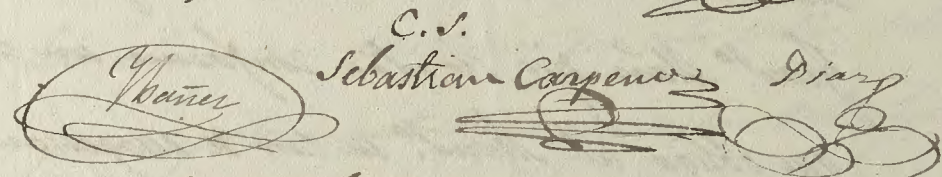 C. S.
Ybañez Sebastian Carpena Diaz